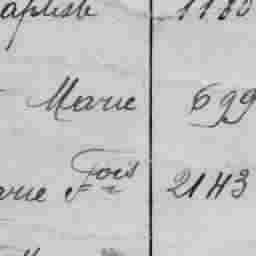 aptiste 1180
Marie 699
arie Fois 2143